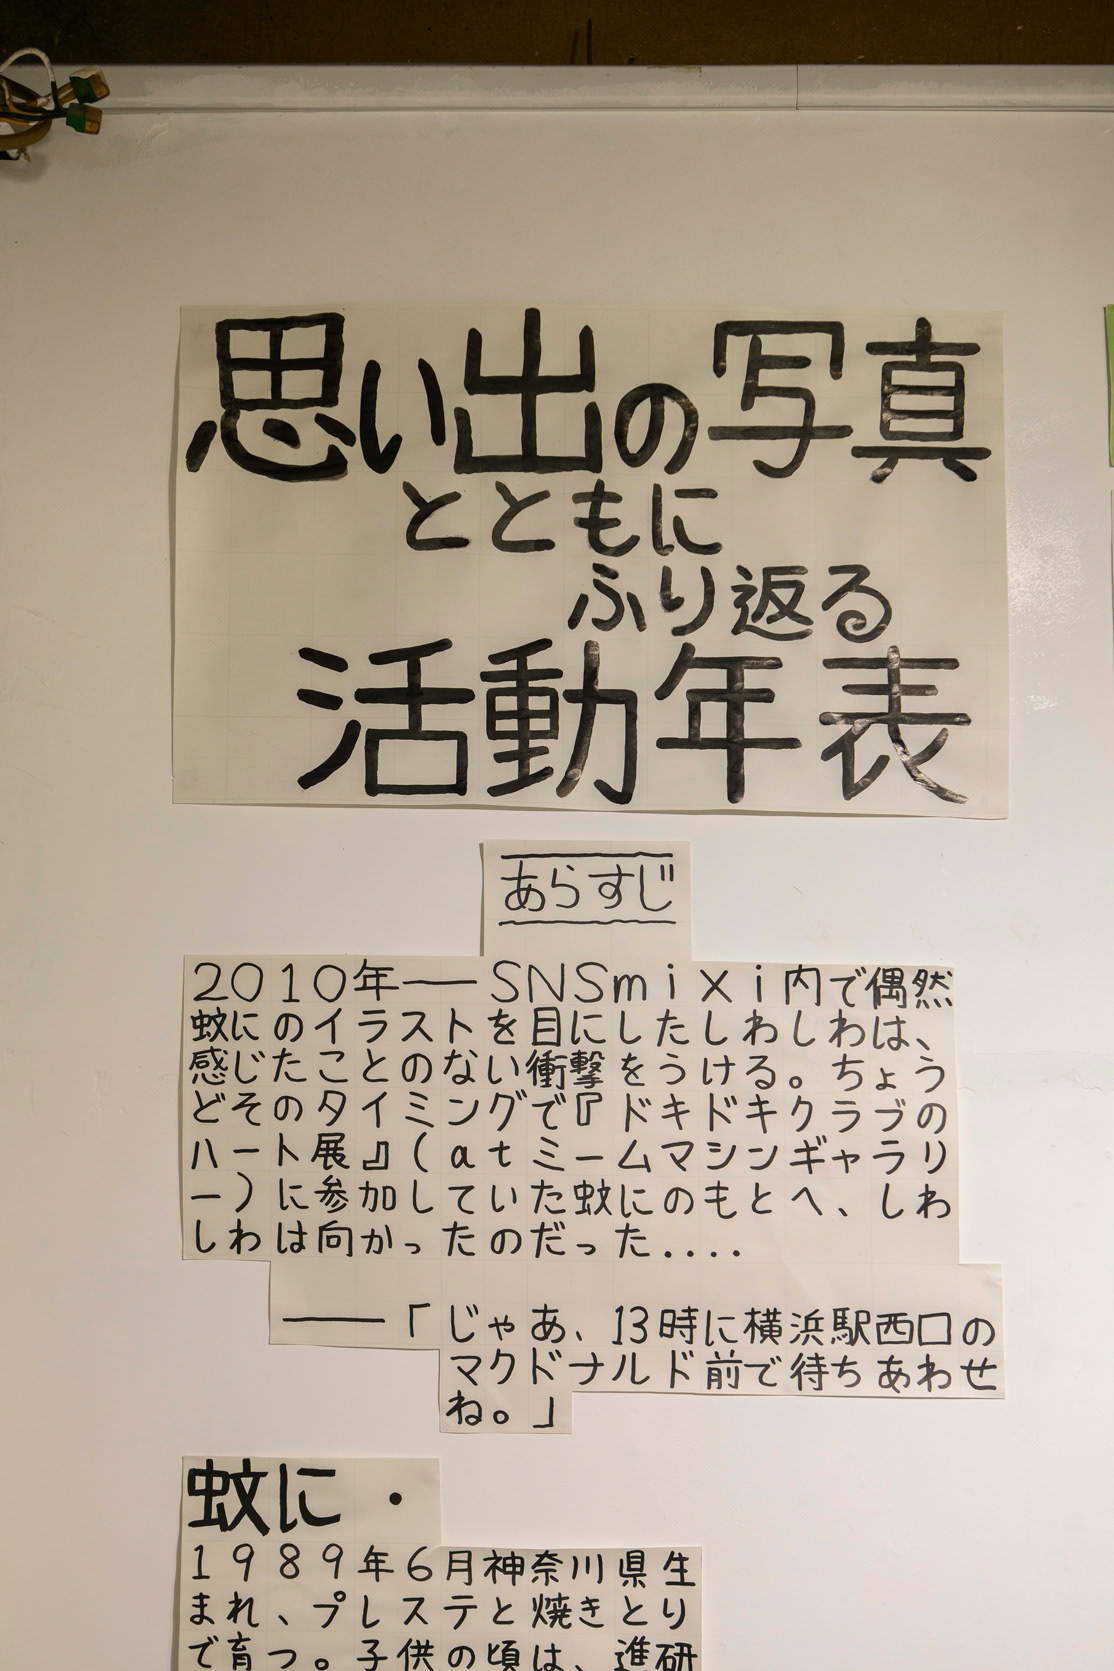 思い出の写真
とともに
ふり返る
活動年表
あらすじ
2010年──SNSmixi内で偶然
蚊にのイラストを目にしたしわしわは、
感じたことのない衝撃をうける。ちょう
どそのタイミングで『ドキドキクラブの
ハート展』(atミームマシンギャラリ
ー)に参加していた蚊にのもとへ、しわ
しわは向かったのだった....
──「じゃあ、13時に横浜駅西口の
マクドナルド前で待ちあわせ
ね。」
蚊に・
1989年6月神奈川県生
まれ、プレステと焼きとり
で育つ。子供の頃は、進研